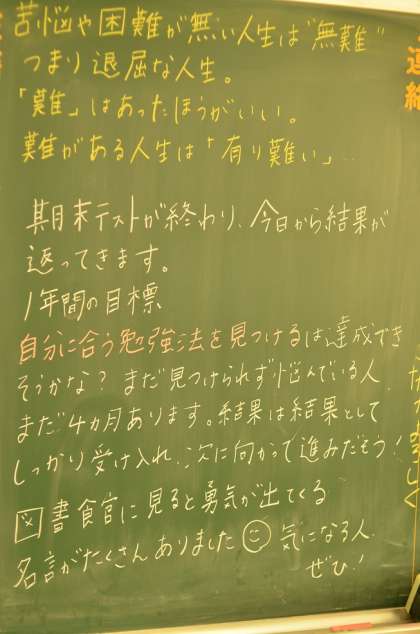 苦悩や困難が無い人生は"無難"
つまり退屈な人生。
「難」はあったほうがいい。
難がある人生は「有り難い」…
期末テストが終わり、今日から結果が
返ってきます。
1年間の目標
自分に合う勉強法を見つけるは達成でき
そうかな？まだ見つけられず悩んでいる人
まだ4カ月あります。結果は結果として
しっかり受け入れ、次に向かって進みだそう！
図書食官に見ると勇気が出てくる
名言がたくさんありました 気になる人
ぜひ！
連絡